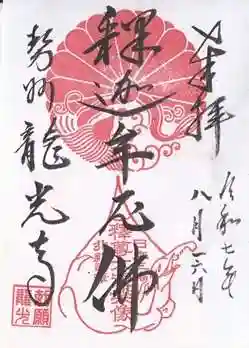 奉拝
令和七年
八月二六日
釋迦牟尼佛
勢州龍光寺
勅願
龍光